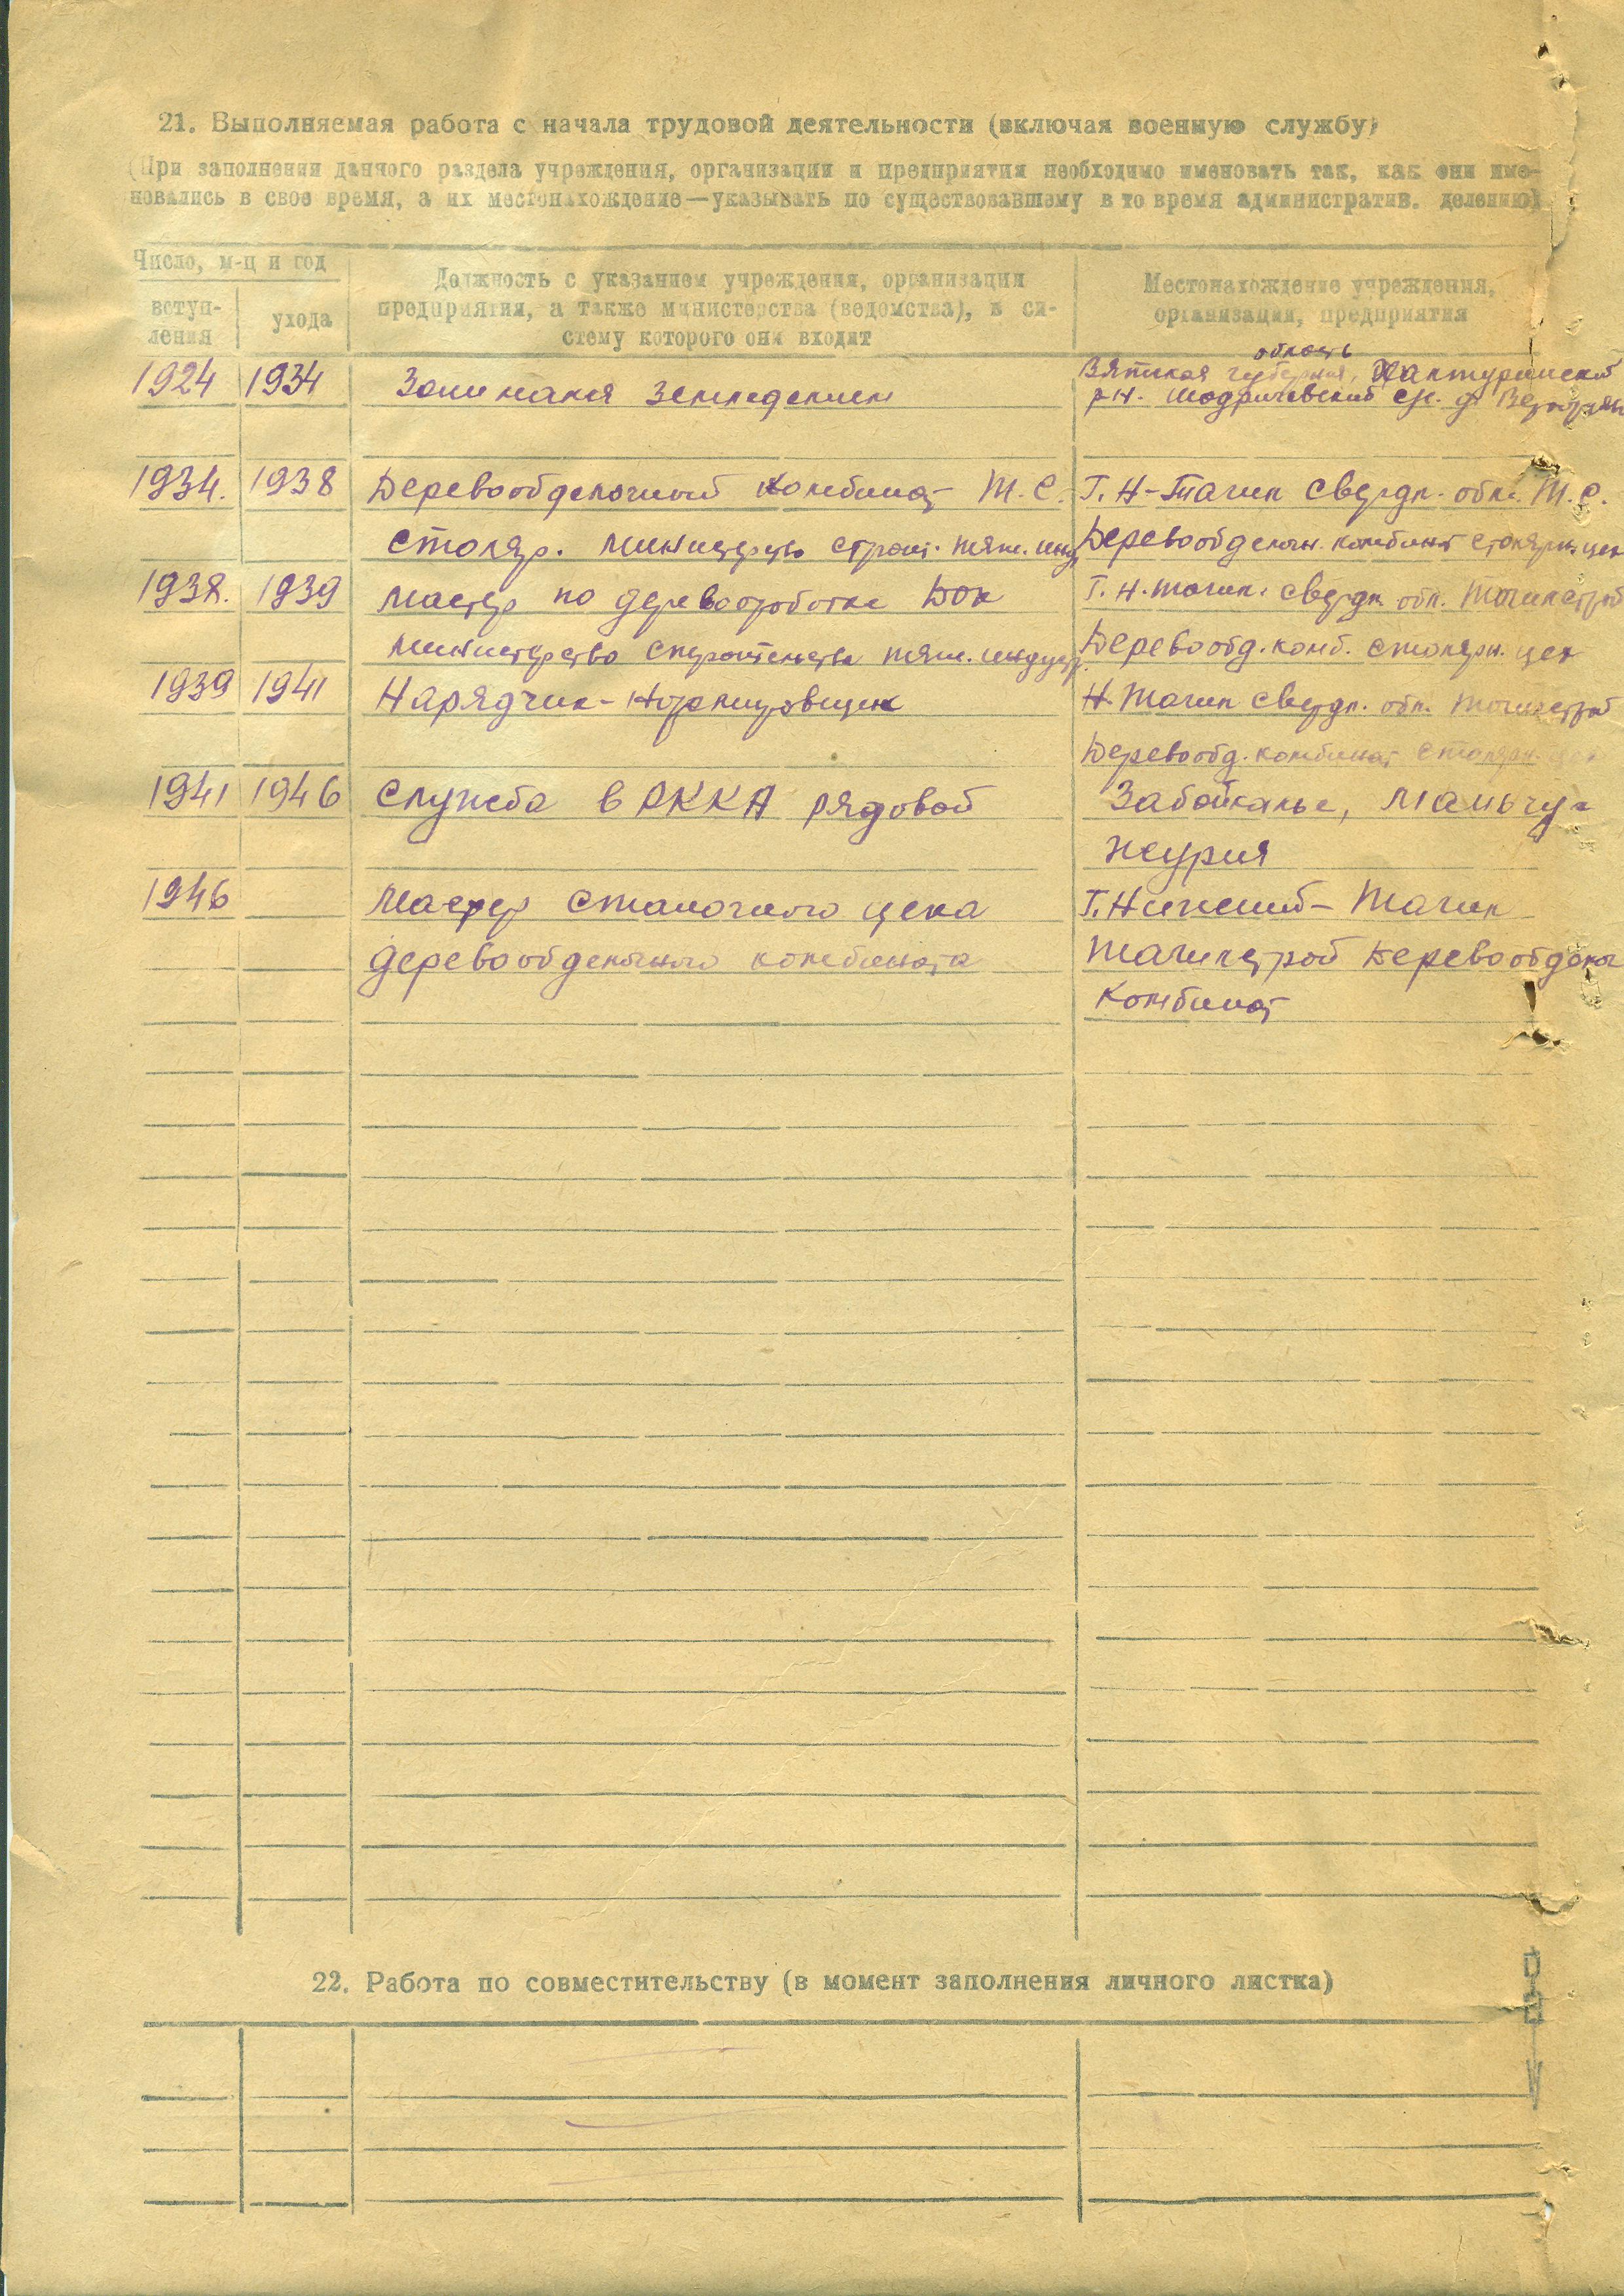 21. Выполняемая работа с начала трудовой деятельности (включая военную службу)
(При заполнении данного раздела учреждения, организации и предприятия необходимо именовать так, как они име-
новались в свое время, а их местонахождение—указывать по существовавшему в то время административ. делению)
Число, м-ц и год
вступ-
ления
ухода
Должность с указанием учреждения, организации
предприятия, а также министерства (ведомства), в си-
стему которого они входит
Местонахождение учреждения,
организации, предприятия
область
1924 1934 Занимался земледелием Вятская губерния,
р-н.
1934. 1938 Деревообделочный комбинат Т.С. Г. Н-Тагил Свердл. обл. Т.С.
столяр. Министерство строит. тяж. инд. Деревообделочн. комбинат столярн. цех
1938. 1939 Мастер по деревообработке ДОК Г. Н. Тагил. Свердл. обл. Тагилстрой
Министерство строительства тяж. индустр. Деревообд. комб. столярн. цех
1939 1941 Нарядчик-нормировщик Н. Тагил Свердл. обл. Тагилстрой
Деревообд. комбинат столярн. цех
1941 1946 служба в РККА рядовой Забайкалье, Маньчу-
журия
1946 Мастер станочного цеха Г. Нижний-Тагил
деревообделочного комбината Тагилстрой Деревообделоч
Комбинат
22. Работа по совместительству (в момент заполнения личного листка)